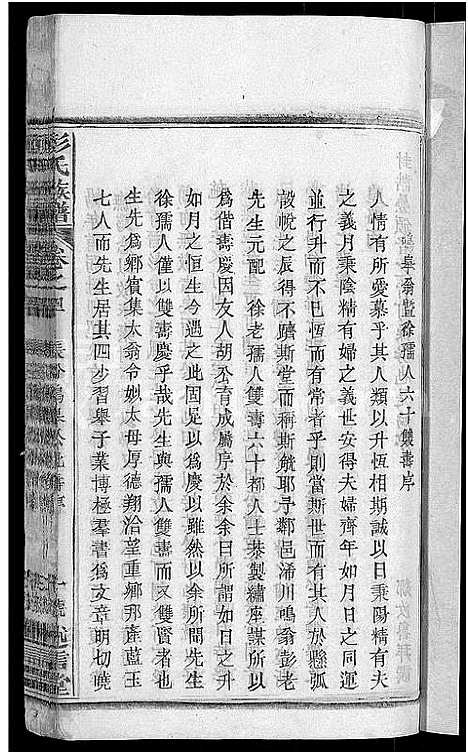 鳴皋翁暨徐孺人六十雙壽序
人情有所愛慕乎其人類以升恆相期誠以日秉陽精有夫
之義月秉陰精有婦之義世安得夫婦齊年如月日之同運
並行升而不已恆而有常者乎則當斯世而有其人於懸弧
設帨之辰得不躋斯堂而稱斯觥耶予鄰邑浠川鳴翁彭老
先生元配 徐老孺人雙壽六十都人士恭製繡座謀所以
爲偕壽慶因友人胡丕育成屬序於余余曰所謂如日之升
如月之恒生今遇之此固足以爲慶以雖然以余所聞先生
徐孺人僅以雙壽慶乎哉先生與孺人雙壽而又雙賢者也
生先爲鄉賓集太翁令姒太母厚德翔洽望重鄉邦產藍玉
七人而先生居其四少習舉子業博極羣書爲文章明切曉
彭氏族譜 卷之